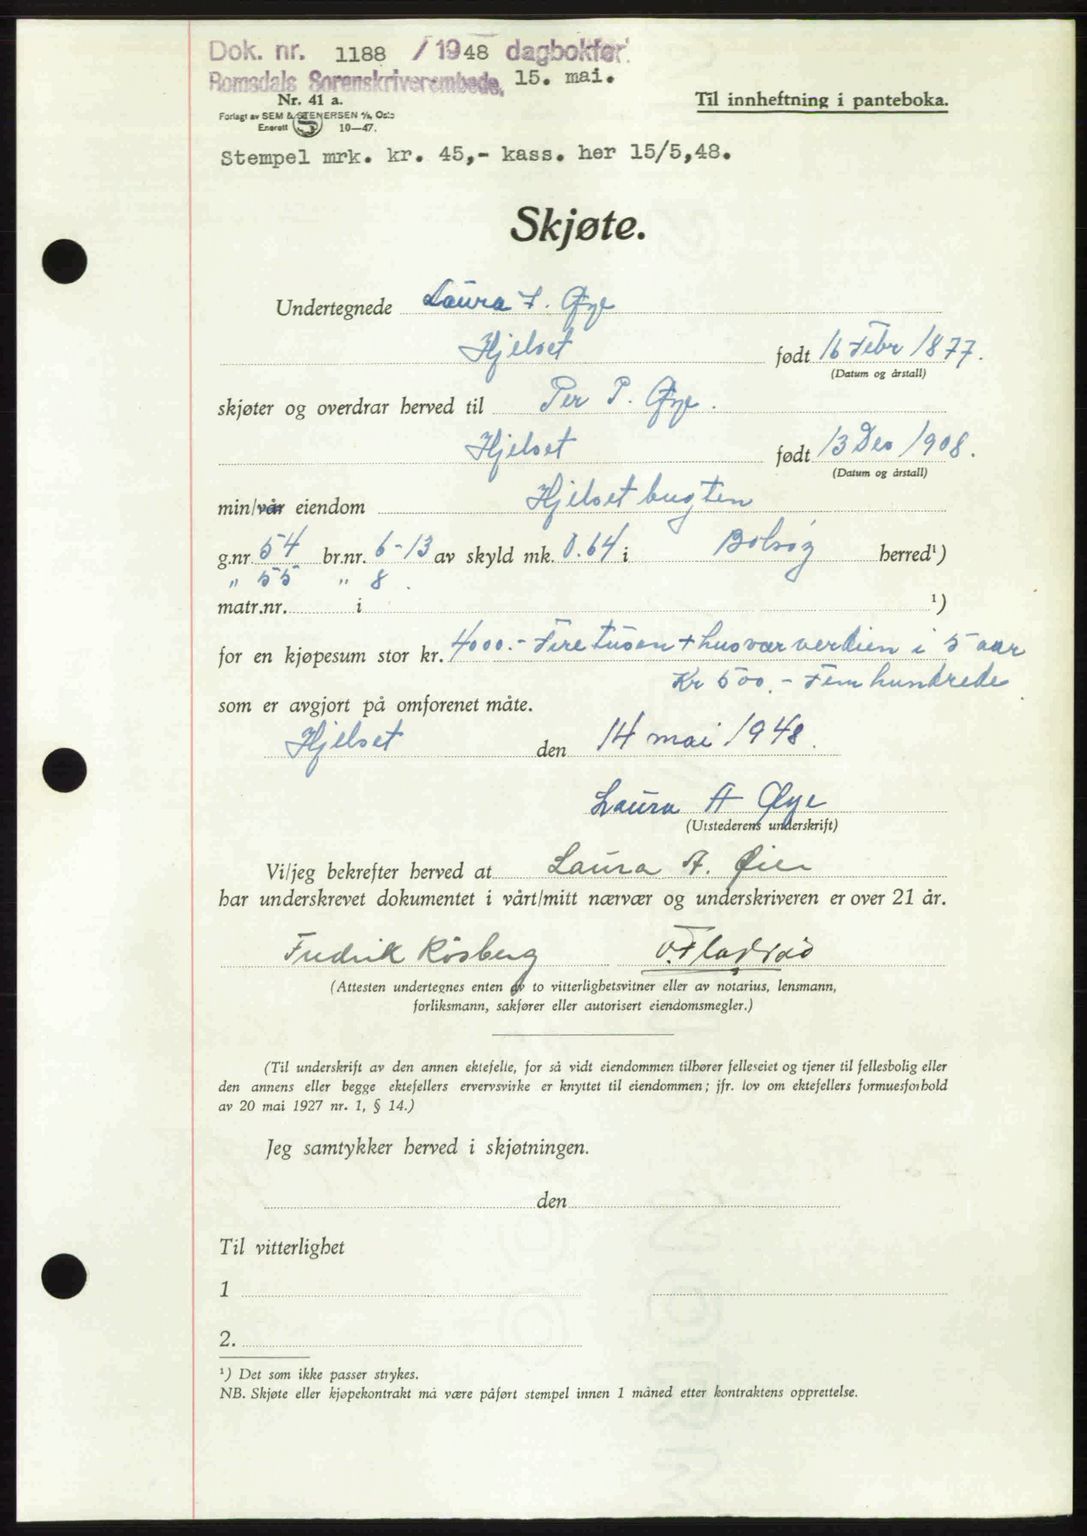 Dok. nr. 1188 / 1948 dagbokført
Romsdals Sorenskriverembede, 15. mai.
Nr. 41 a.
Forlagt av SEM & STENERSEN A/S, Oslo
Enerett 10—47.
Til innheftning i panteboka.
Stempel mrk. kr. 45,- kass. her 15/5,48.
Skjøte.
Undertegnede Laura A. Øye
Hjelset født 16 Febr 1877.
(Datum og årstall)
skjøter og overdrar herved til Per P. Øye.
Hjelset født 13 Des 1908.
(Datum og årstall)
min/vår eiendom Hjelset bugten
g.nr 54 br.nr. 6-13 av skyld mk. 0.64 i Bolsøy herred¹)
" 55 " 8.
matr.nr. i ¹)
for en kjøpesum stor kr. 4000.- Fire tusen + husvær verdien i 5 aar
Kr 500.- Fem hundrede
som er avgjort på omforenet måte.
Hjelset den 14 mai 1948.
Laura A Øye
(Utstederens underskrift)
Vi/jeg bekrefter herved at Laura A. Øien
har underskrevet dokumentet i vårt/mitt nærvær og underskriveren er over 21 år.
Fredrik Røsberg
(Attesten undertegnes enten av to vitterlighetsvitner eller av notarius, lensmann,
forliksmann, sakfører eller autorisert eiendomsmegler.)
(Til underskrift av den annen ektefelle, for så vidt eiendommen tilhører felleseiet og tjener til fellesbolig eller
den annens eller begge ektefellers ervervsvirke er knyttet til eiendommen; jfr. lov om ektefellers formuesforhold
av 20 mai 1927 nr. 1, § 14.)
Jeg samtykker herved i skjøtningen.
den
Til vitterlighet
1
2.
¹) Det som ikke passer strykes.
NB. Skjøte eller kjøpekontrakt må være påført stempel innen 1 måned etter kontraktens opprettelse.